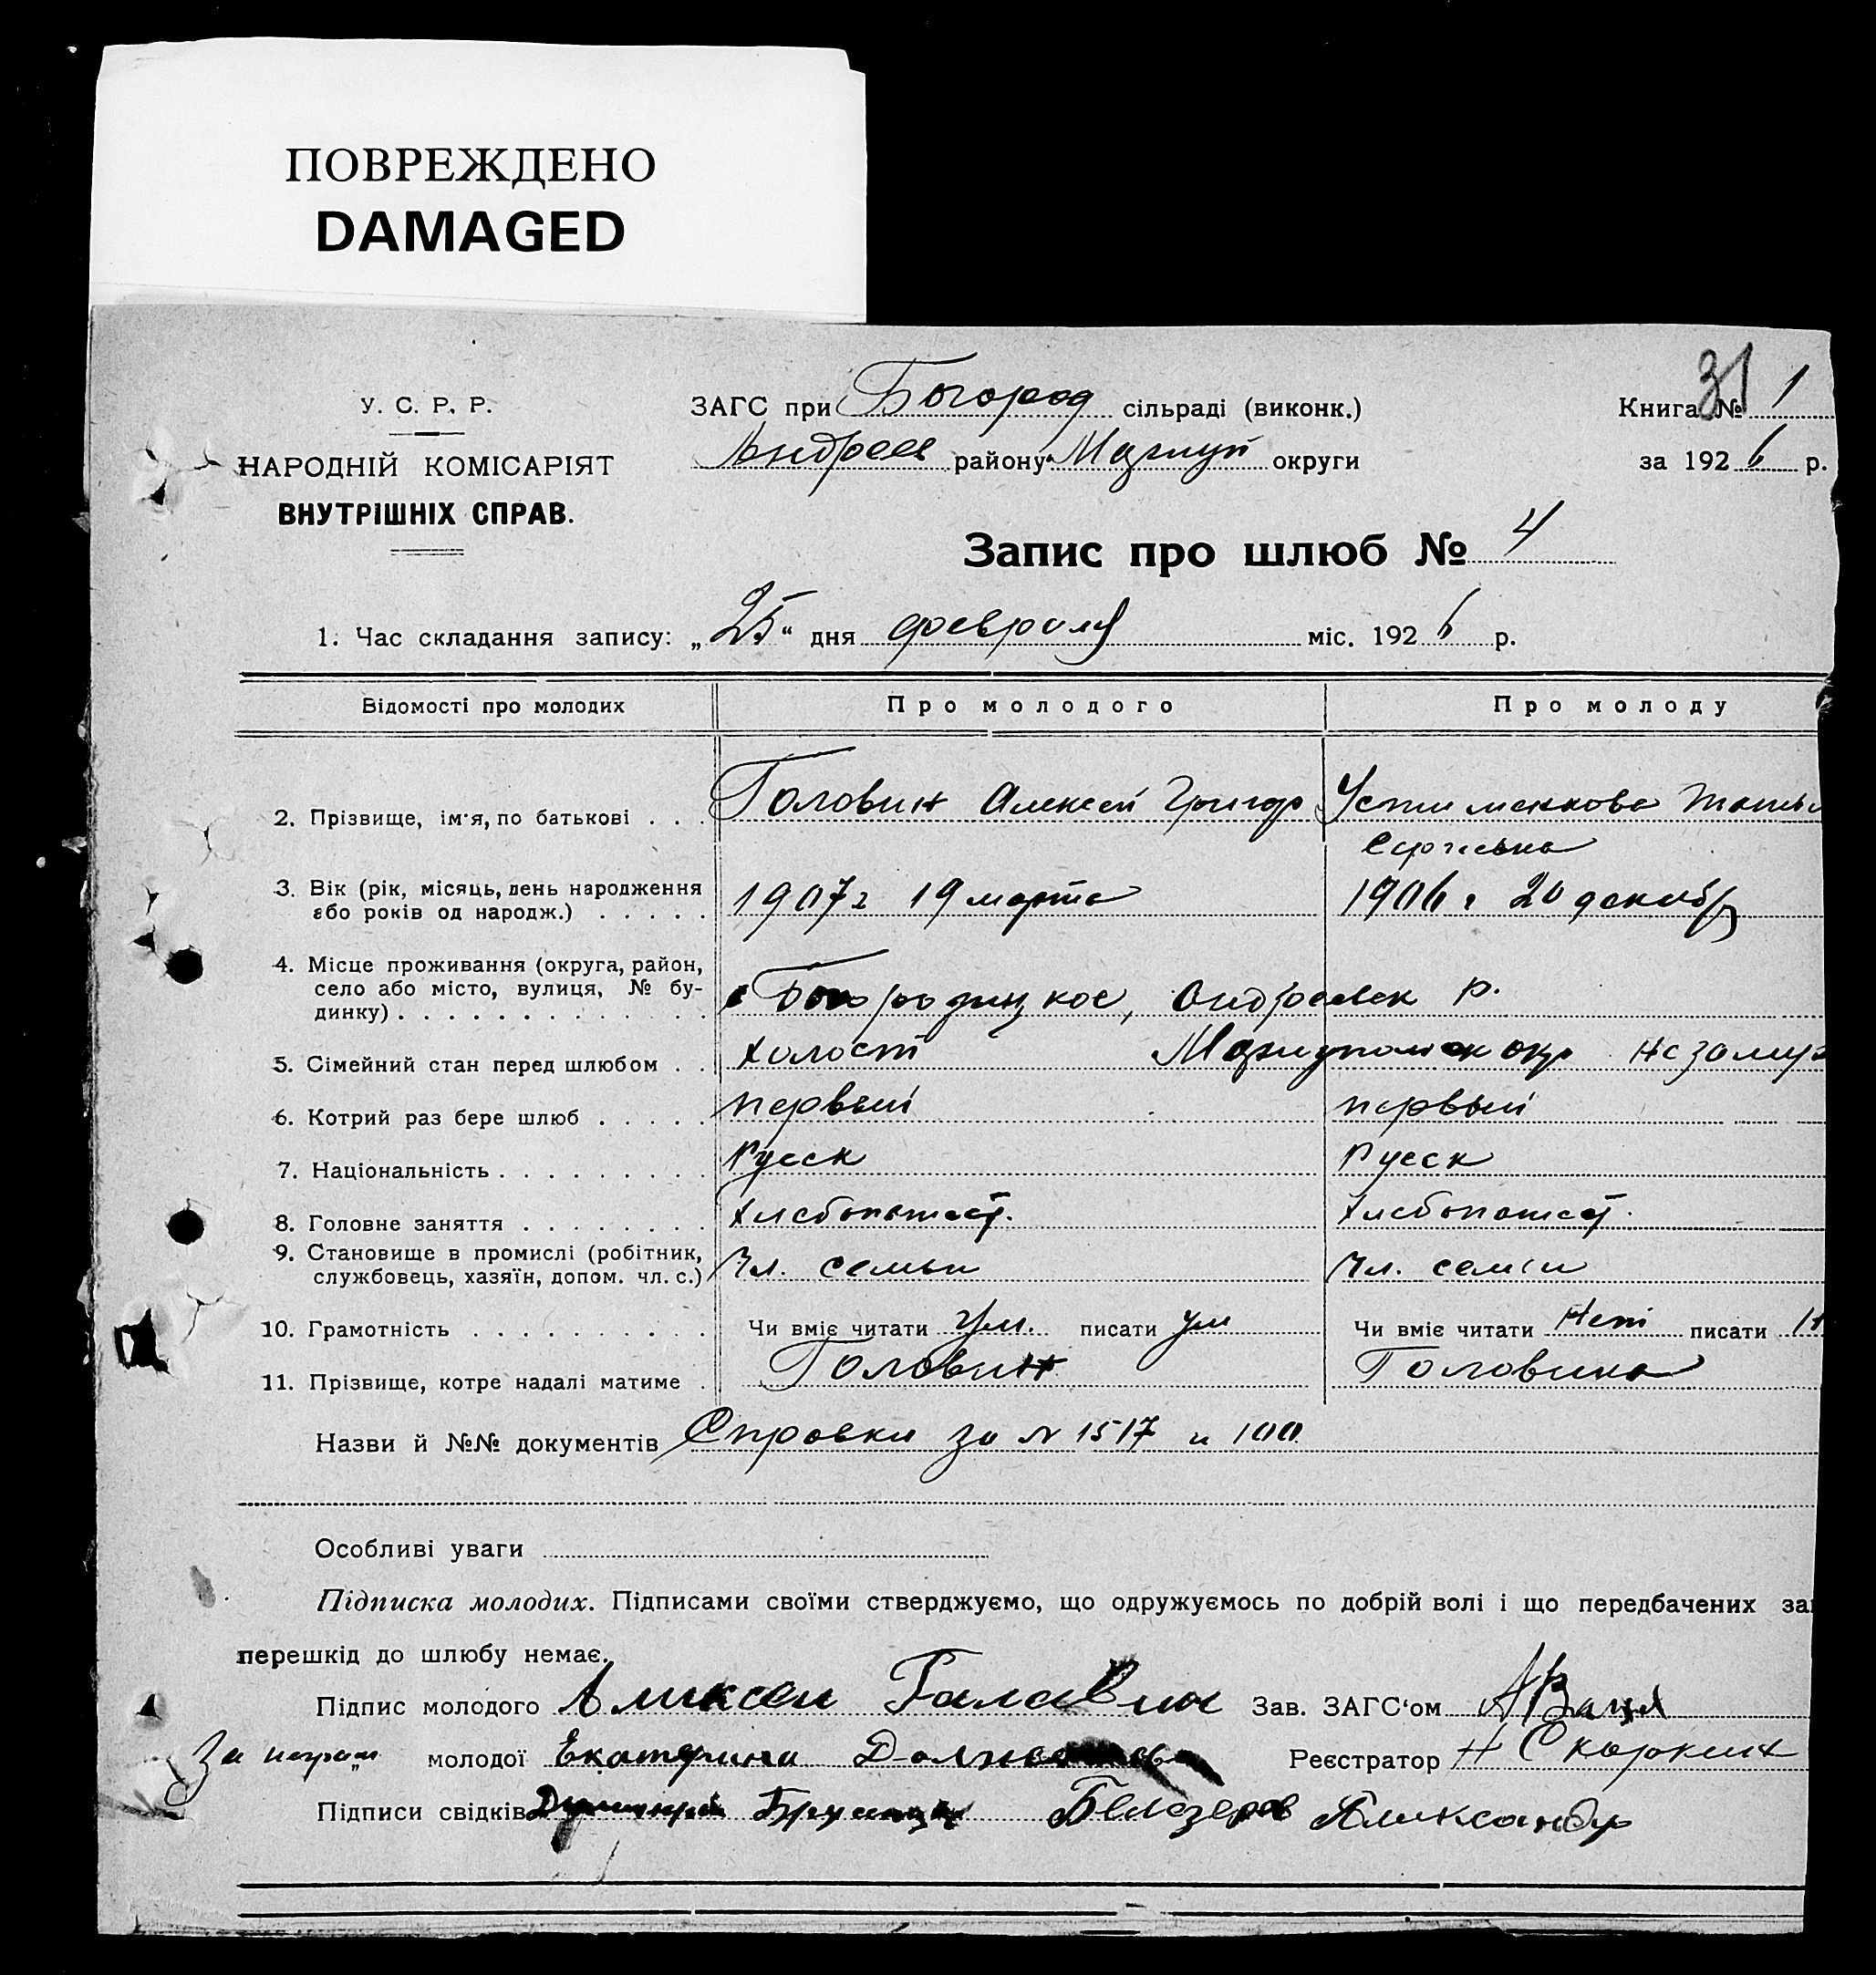 ПОВРЕЖДЕНО
DAMAGED
31
У. С. Р. Р.
НАРОДНІЙ КОМІСАРІЯТ
ВНУТРІШНІХ СПРАВ.
ЗАГС при Богород сільраді (виконк.)
Андреев району Мариуп округи
Книга № 1
за 1926 р.
Запис про шлюб № 4
1. Час складання запису: „25“ дня февраля міс. 1926 р.
Відомості про молодих Про молодого Про молоду
2. Прізвище, ім'я, по батькові . . . Головин Алексей Григор Устименкова Татья
Сергеевна
3. Вік (рік, місяць, день народження
або років од народж.) . . . . . 1907 г 19 марта 1906 г 20 декабр
4. Місце проживання (округа, район,
село або місто, вулиця, № бу-
динку) . . . . . . . . . . . . . Богородицкое, Андреевск р.
5. Сімейний стан перед шлюбом . . холост Мариупольск окр незамуж
6. Котрий раз бере шлюб . . . . . первый первый
7. Національність . . . . . . . . . Русск Русск
8. Головне заняття . . . . . . . . Хлебопашест. Хлебопашест.
9. Становище в промислі (робітник,
службовець, хазяїн, допом. чл. с.) Чл. семьи Чл. семьи
10. Грамотність . . . . . . . . . . Чи вміє читати ум. писати ум Чи вміє читати Нет писати Н
11. Прізвище, котре надалі матиме . Головин Головина
Назви й №№ документів Справки за N 1517 и 100
Особливі уваги
Підписка молодих. Підписами своїми стверджуємо, що одружуємось по добрій волі і що передбачених за
перешкід до шлюбу немає.
Підпис молодого Аликсеи Галавин Зав. ЗАГС'ом
За неграм „ молодої Екатерина Реєстратор Н Скоркин
Підписи свідків Дмитрий Белозеров Александр